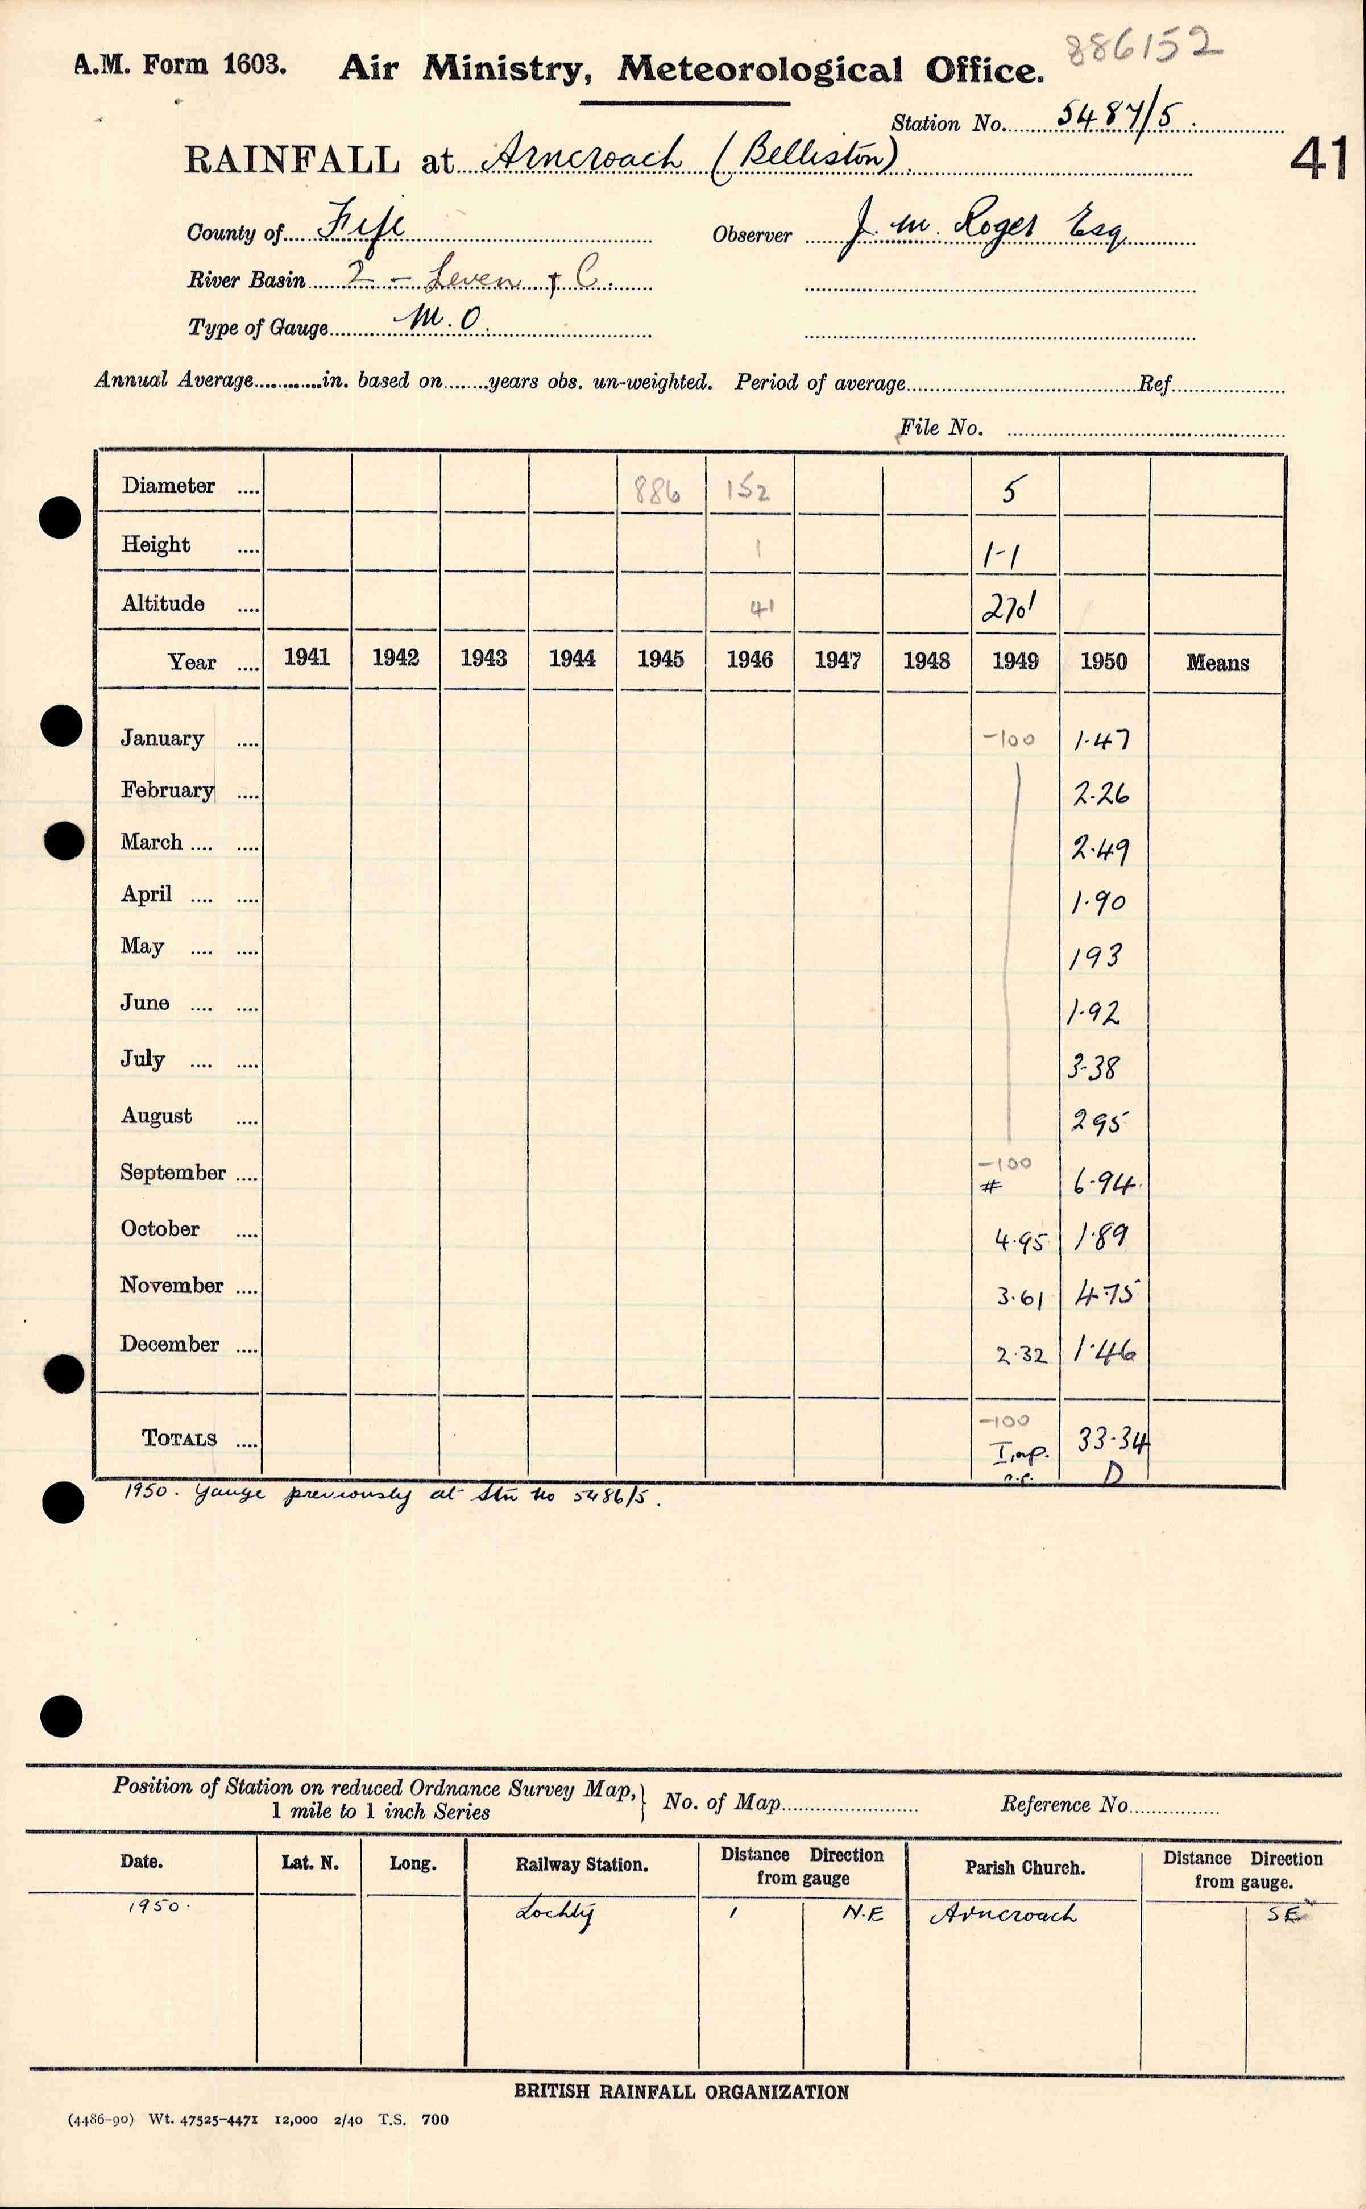 886152
A.M. Form 1603. Air Ministry, Meteorological Office.
Station No. 5487/5.
41
RAINFALL at Arncroach (Belliston)
County of Fife Observer J. M. Roger Esq
River Basin 2 - Leven & C.
Type of Gauge M.O.
Annual Average............in. based on........years obs. un-weighted. Period of average................Ref................
File No. ................
Diameter .... 886 152 5
Height .... 1 1-1
Altitude .... 41 270'
Year .... 1941 1942 1943 1944 1945 1946 1947 1948 1949 1950 Means
January .... -100 1.47
February .... 2.26
March .... .... 2.49
April .... .... 1.90
May .... .... 193
June .... .... 1.92
July .... .... 3.38
August .... 295
September .... -100 # 6.94
October .... 4.95 1.89
November .... 3.61 4.75
December .... 2.32 1.46
TOTALS .... -100 Imp. 33.34
n.c. D
1950. Gauge previously at Stn No 5486/5.
Position of Station on reduced Ordnance Survey Map, 1 mile to 1 inch Series } No. of Map................ Reference No................
Date. Lat. N. Long. Railway Station. Distance Direction from gauge Parish Church. Distance Direction from gauge.
1950. Lochty 1 N.E Arncroach SE
BRITISH RAINFALL ORGANIZATION
(4486-90) Wt. 47525-4471 12,000 2/40 T.S. 700